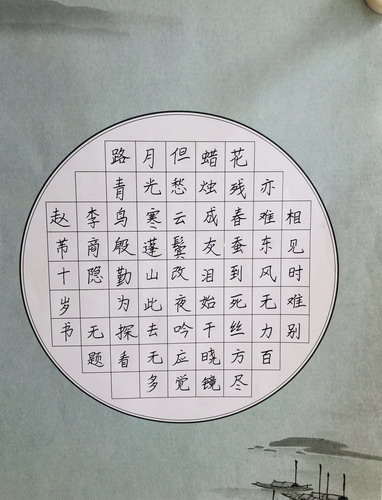 相见时难别
亦难东风无力百
花残春蚕到死丝方尽
蜡烛成灰泪始干晓镜
但愁云鬓改夜吟应觉
月光寒蓬山此去无多
路青鸟殷勤为探看
李商隐 无题
赵芾十岁书